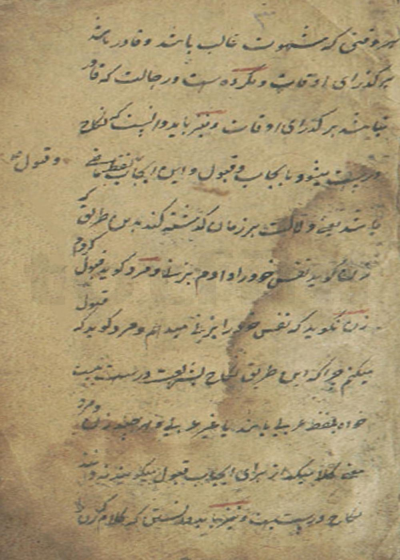 هر وقتی که شهوت غالب باشد و قادر باشد
بر گذرای اوقات و مکروه است در حالت که قادر
نباشد بر گذرای اوقات و نیز باید دانست که نکاح
درست میشود بایجاب و قبول و این ایجاب بلفظ ماضی
و قبول
باشد یعنی دلالت بر زمان گذشته کند بدین طریق که
زن بگوید نفس خود را دادم بزنی و مرد گوید قبول کردم
زن بگوید که نفس خود را بزنی میدهم و مرد گوید که قبول
میکنم چرا که این طریق نکاح بشریعت درست نیست
خواه بلفظ عربی باشد یا غیر عربی و هر چند زن و مرد
معنی کلامیکه از برای ایجاب قبول میگویند ندانند
نکاح درست است و نیز باید دانستن که کلام